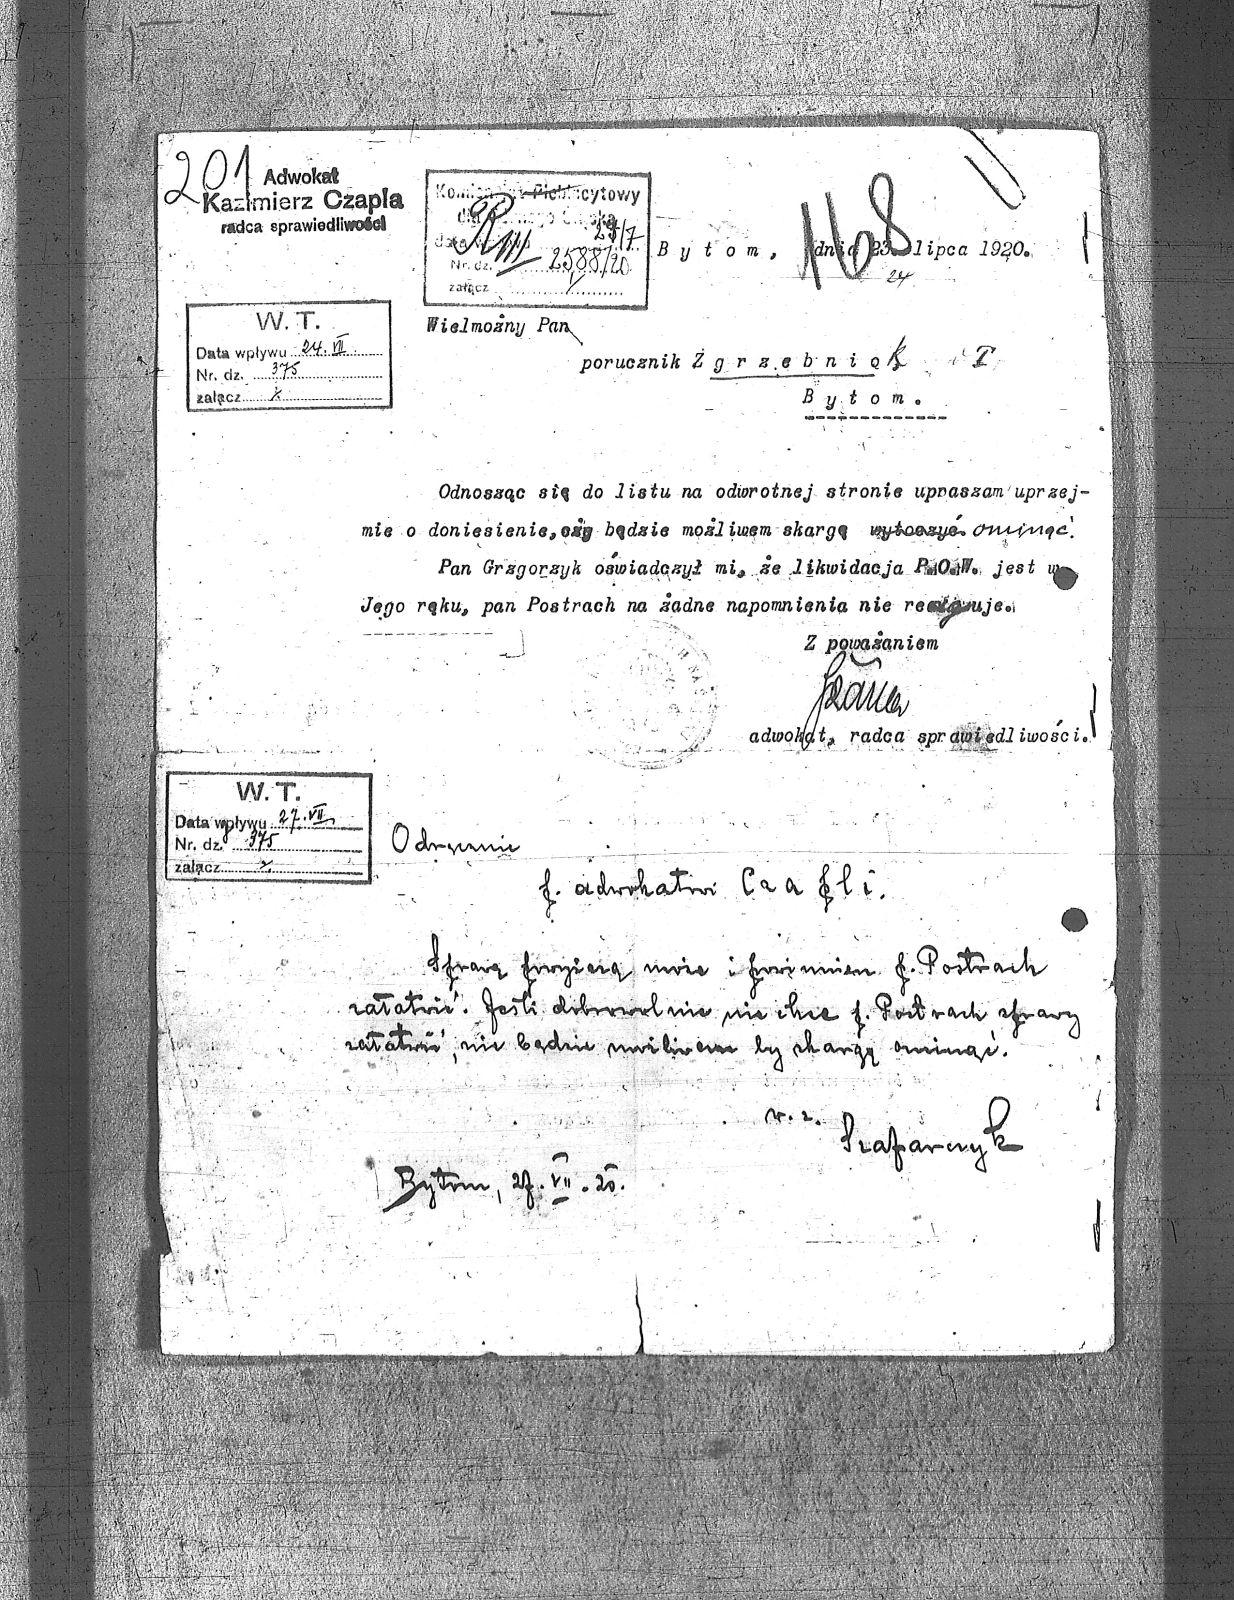 201
Adwokat
Kazimierz Czapla
radca sprawiedliwości
Komisarjat Plebiscytowy
dla Górnego Śląska
R III 27/7
Nr. dz. 2588/20
załącz
168
Bytom, dnia 23. lipca 1920.
24
W. T.
Data wpływu 24. VII
Nr. dz. 375
załącz
Wielmożny Pan
porucznik Zgrzebniok T
Bytom.
Odnosząc się do listu na odwrotnej stronie upraszam uprzej-
mie o doniesienie, czy będzie możliwem skargę wytoczyć ominąć.
Pan Grzgorzyk oświadczył mi, że likwidacja P.O.W. jest w
Jego ręku, pan Postrach na żadne napomnienia nie reaguje.
Z poważaniem
adwokat, radca sprawiedliwości.
W. T.
Data wpływu 27. VII
Nr. dz. 375
załącz
Odręcznie
p. adwokatowi Czapli.
Sprawę powyższą i p. Postrach
załatwić. Jeśli dobrowolnie nie chce p. Postrach sprawy
załatwić, nie będzie możliwem by skargę ominąć.
w. z.
Szafarczyk
Bytom, 27. VII. 20.